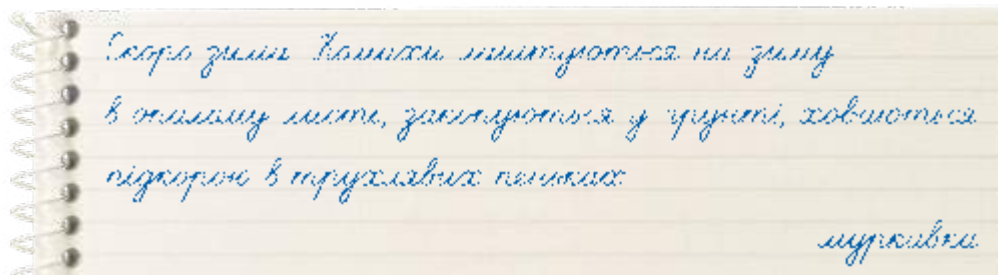 Скоро зима Комахи лаштуються на зиму
в опалому листі, закопуються у ґрунті, ховаються
під корою в трухлявих пеньках
мурк